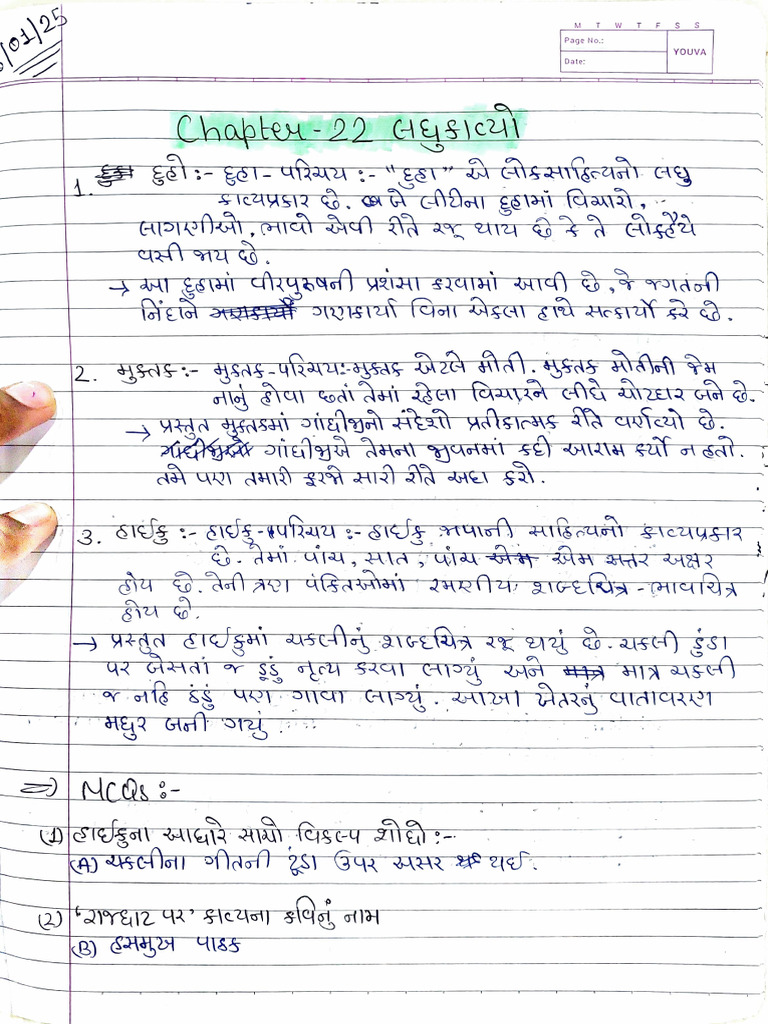 /01/25
M T W T F S S
Page No.:
Date:
YOUVA
Chapter-22 લઘુકાવ્યો
1. દુહો :- દુહા - પરિચય :- "દુહા" એ લોકસાહિત્યનો લઘુ
કાવ્યપ્રકાર છે. બે લીટીના દુહામાં વિચારો,
લાગણીઓ, ભાવો એવી રીતે રજૂ થાય છે કે તે લોકહૈયે
વસી જાય છે.
→ આ દુહામાં વીરપુરુષની પ્રશંસા કરવામાં આવી છે, જે જગતની
નિંદાને ગણકાર્યા વિના એકલા હાથે સત્કાર્યો કરે છે.
2. મુક્તક :- મુક્તક-પરિચય:- મુક્તક એટલે મોતી. મુક્તક મોતીની જેમ
નાનું હોવા છતાં તેમાં રહેલા વિચારને લીધે ચોટદાર બને છે.
→ પ્રસ્તુત મુક્તકમાં ગાંધીજીનો સંદેશો પ્રતીકાત્મક રીતે વર્ણવ્યો છે.
ગાંધીજીએ તેમના જીવનમાં કદી આરામ કર્યો ન હતો.
તમે પણ તમારી ફરજો સારી રીતે અદા કરો.
3. હાઈકુ :- હાઈકુ - પરિચય :- હાઈકુ જાપાની સાહિત્યનો કાવ્યપ્રકાર
છે. તેમાં પાંચ, સાત, પાંચ એમ સત્તર અક્ષર
હોય છે. તેની ત્રણ પંક્તિઓમાં રમણીય શબ્દચિત્ર - ભાવચિત્ર
હોય છે.
→ પ્રસ્તુત હાઈકુમાં ચકલીનું શબ્દચિત્ર રજૂ થયું છે. ચકલી ડૂંડા
પર બેસતાં જ ડૂંડું નૃત્ય કરવા લાગ્યું અને માત્ર ચકલી
જ નહિ ડૂંડું પણ ગાવા લાગ્યું. આખા ખેતરનું વાતાવરણ
મધુર બની ગયું.
⇒ MCQs :-
(1) હાઈકુના આધારે સાચો વિકલ્પ શોધો :-
(A) ચકલીના ગીતની ડૂંડા ઉપર અસર થઈ.
(2) 'રાજઘાટ પર' કાવ્યના કવિનું નામ
(B) હસમુખ પાઠક